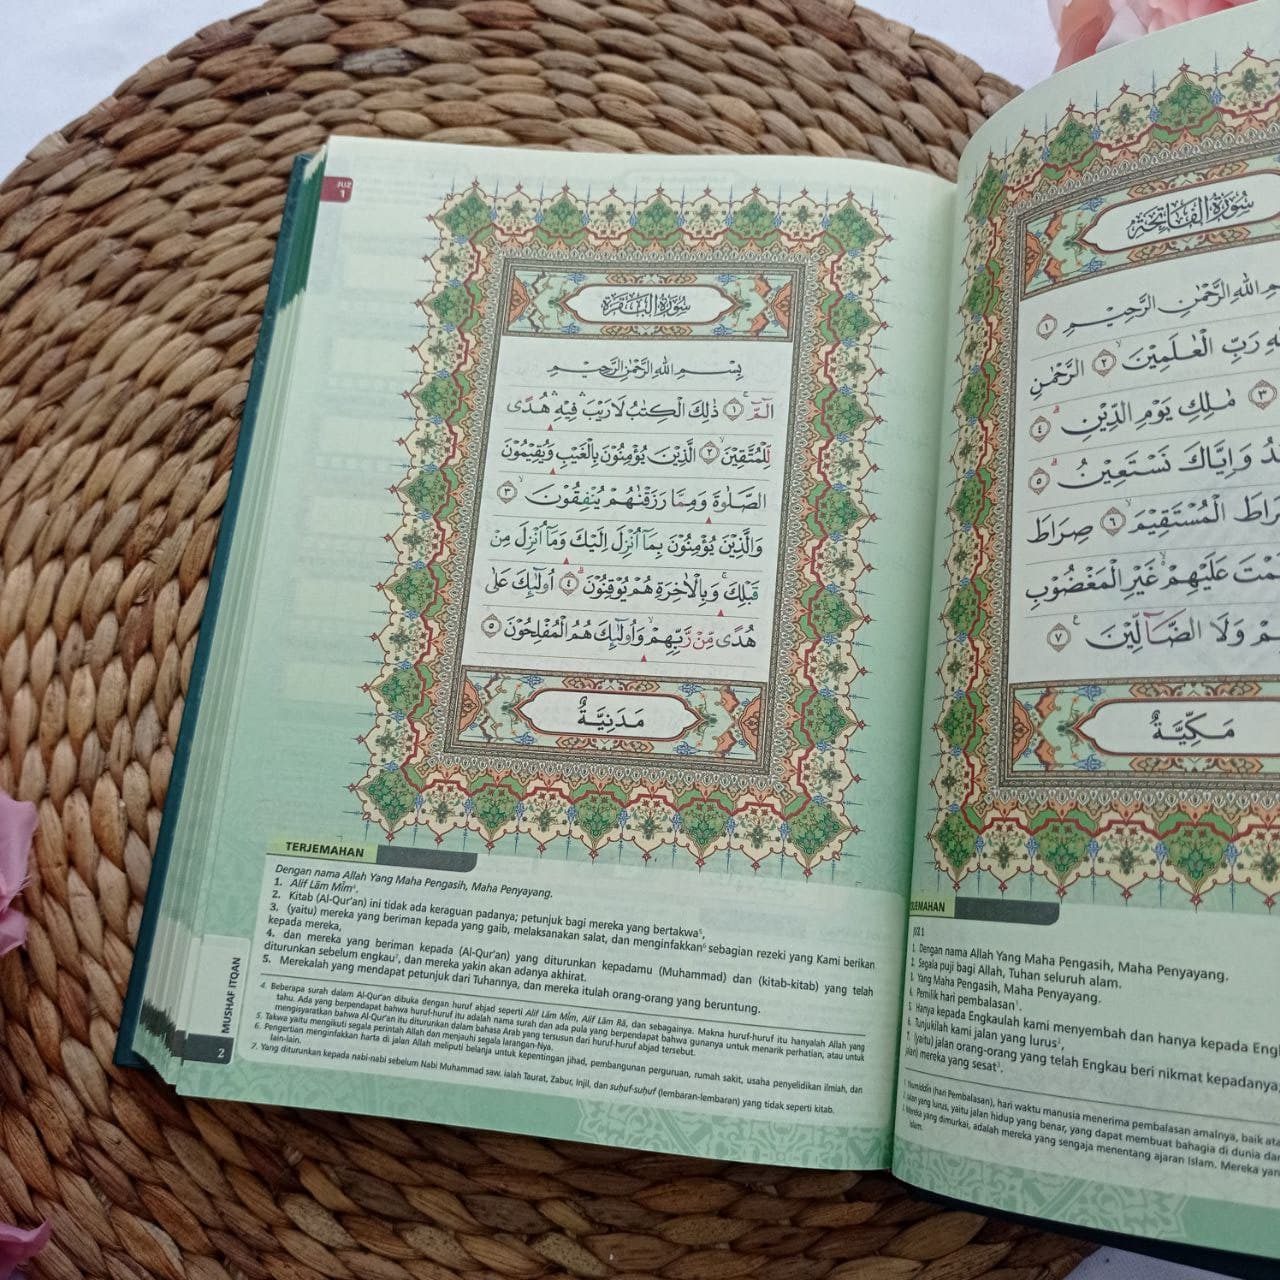 سُوْرَةُ الْفَاتِحَةِ
اللهِ الرَّحْمٰنِ الرَّحِيْمِ ۝١
رَبِّ الْعٰلَمِيْنَ ۝٢ الرَّحْمٰنِ
۝٣ مٰلِكِ يَوْمِ الدِّيْنِ ۝٤
وَاِيَّاكَ نَسْتَعِيْنُ ۝٥
الْمُسْتَقِيْمَ ۝٦ صِرَاطَ
عَلَيْهِمْ غَيْرِ الْمَغْضُوْبِ
وَلَا الضَّاۤلِّيْنَ ۝٧
مَكِّيَّةٌ
JUZ 1
1. Dengan nama Allah Yang Maha Pengasih, Maha Penyayang.
2. Segala puji bagi Allah, Tuhan seluruh alam.
3. Yang Maha Pengasih, Maha Penyayang.
4. Pemilik hari pembalasan¹.
5. Hanya kepada Engkaulah kami menyembah dan hanya kepada
6. Tunjukilah kami jalan yang lurus²,
7. (yaitu) jalan orang-orang yang telah Engkau beri nikmat kepadanya;
mereka yang sesat³.
(hari Pembalasan), hari waktu manusia menerima pembalasan amalnya, baik
Jalan yang lurus, yaitu jalan hidup yang benar, yang dapat membuat bahagia di dunia
Mereka yang dimurkai, adalah mereka yang sengaja menentang ajaran Islam. Mereka
JUZ
1
سُوْرَةُ الْبَقَرَةِ
بِسْمِ اللهِ الرَّحْمٰنِ الرَّحِيْمِ
الۤمّۤ ۝١ ذٰلِكَ الْكِتٰبُ لَا رَيْبَ ۛ فِيْهِ ۛ هُدًى
لِّلْمُتَّقِيْنَ ۝٢ الَّذِيْنَ يُؤْمِنُوْنَ بِالْغَيْبِ وَيُقِيْمُوْنَ
الصَّلٰوةَ وَمِمَّا رَزَقْنٰهُمْ يُنْفِقُوْنَ ۝٣
وَالَّذِيْنَ يُؤْمِنُوْنَ بِمَآ اُنْزِلَ اِلَيْكَ وَمَآ اُنْزِلَ مِنْ
قَبْلِكَ ۚ وَبِالْاٰخِرَةِ هُمْ يُوْقِنُوْنَ ۝٤ اُولٰۤىِٕكَ عَلٰى
هُدًى مِّنْ رَّبِّهِمْ وَاُولٰۤىِٕكَ هُمُ الْمُفْلِحُوْنَ ۝٥
مَدَنِيَّةٌ
TERJEMAHAN
Dengan nama Allah Yang Maha Pengasih, Maha Penyayang.
1. Alif Lām Mīm⁴.
2. Kitab (Al-Qur'an) ini tidak ada keraguan padanya; petunjuk bagi mereka yang bertakwa⁵,
3. (yaitu) mereka yang beriman kepada yang gaib, melaksanakan salat, dan menginfakkan⁶ sebagian rezeki yang Kami berikan
kepada mereka,
4. dan mereka yang beriman kepada (Al-Qur'an) yang diturunkan kepadamu (Muhammad) dan (kitab-kitab) yang telah
diturunkan sebelum engkau⁷, dan mereka yakin akan adanya akhirat.
5. Merekalah yang mendapat petunjuk dari Tuhannya, dan mereka itulah orang-orang yang beruntung.
4. Beberapa surah dalam Al-Qur'an dibuka dengan huruf abjad seperti Alif Lām Mīm, Alif Lām Rā, dan sebagainya. Makna huruf-huruf itu hanyalah Allah yang
tahu. Ada yang berpendapat bahwa huruf-huruf itu adalah nama surah dan ada pula yang berpendapat bahwa gunanya untuk menarik perhatian, atau untuk
mengisyaratkan bahwa Al-Qur'an itu diturunkan dalam bahasa Arab yang tersusun dari huruf-huruf abjad tersebut.
5. Takwa yaitu mengikuti segala perintah Allah dan menjauhi segala larangan-Nya.
6. Pengertian menginfakkan harta di jalan Allah meliputi belanja untuk kepentingan jihad, pembangunan perguruan, rumah sakit, usaha penyelidikan ilmiah, dan
lain-lain.
7. Yang diturunkan kepada nabi-nabi sebelum Nabi Muhammad saw. ialah Taurat, Zabur, Injil, dan suḥuf-suḥuf (lembaran-lembaran) yang tidak seperti kitab.
MUSHAF ITQAN
2